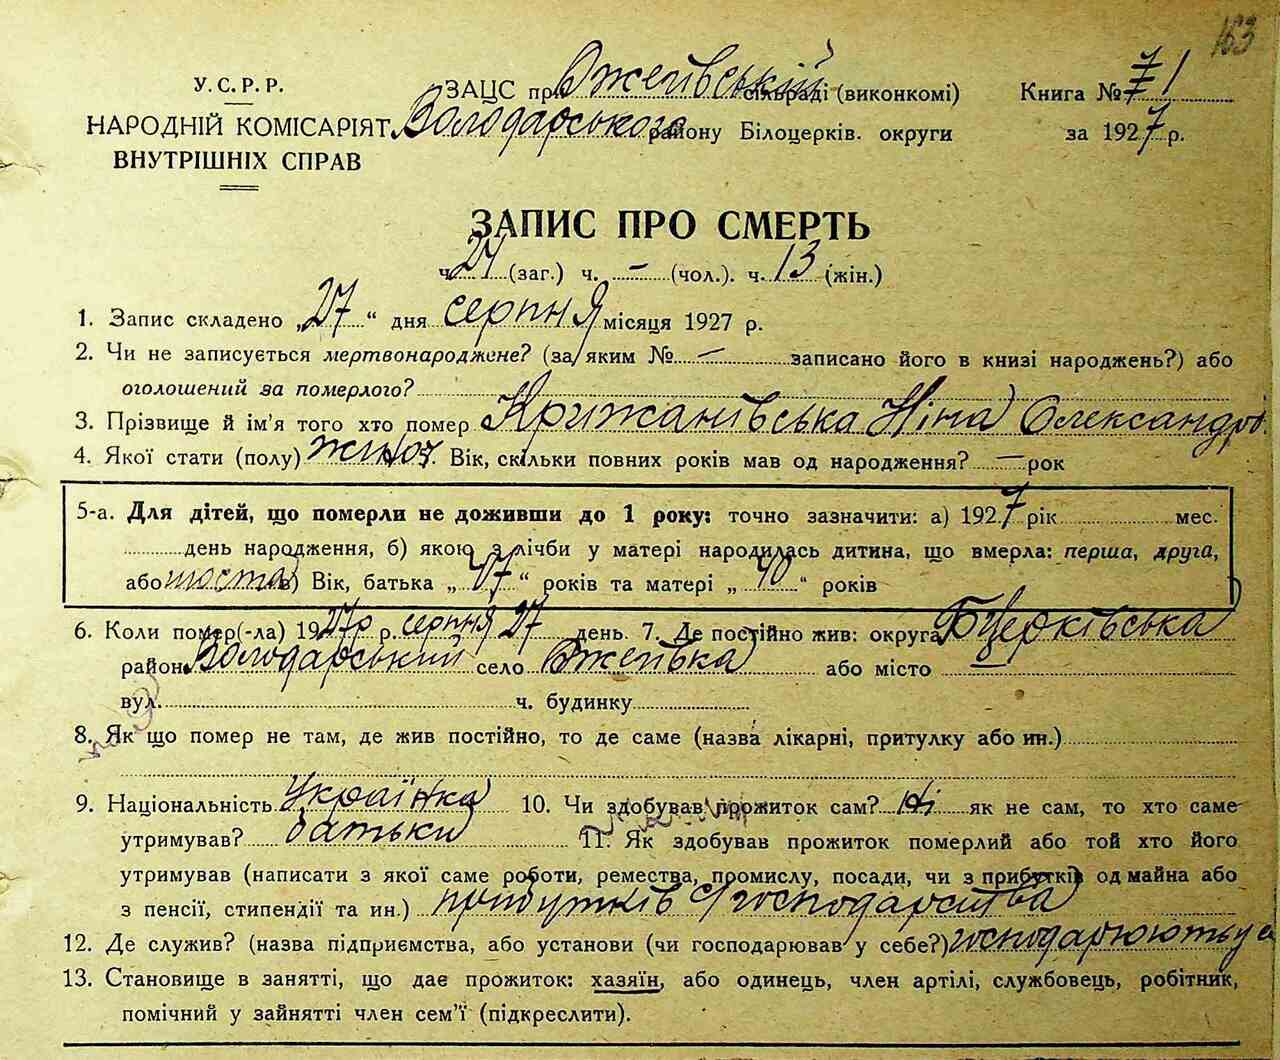 163
У.С.Р.Р.
НАРОДНІЙ КОМІСАРІЯТ
ВНУТРІШНІХ СПРАВ
ЗАЦС при Ожеївській сільраді (виконкомі)
Володарського району Білоцерків. округи
Книга № 1
за 1927 р.
ЗАПИС ПРО СМЕРТЬ
ч. 21 (заг.) ч. – (чол.). ч. 13 (жін.)
1. Запис складено „27“ дня серпня місяця 1927 р.
2. Чи не записується мертвонароджене? (за яким № – записано його в книзі народжень?) або
оголошений за померлого?
3. Прізвище й ім'я того хто помер Крижанівська Ніна Олександрів
4. Якої стати (полу) жіноч. Вік, скільки повних років мав од народження? – рок
5-а. Для дітей, що померли не доживши до 1 року: точно зазначити: а) 1927 рік мес.
день народження, б) якою з лічби у матері народилась дитина, що вмерла: перша, друга,
або шоста в) Вік, батька „47“ років та матері „40“ років
6. Коли помер(-ла) 1927р р. серпня 27 день. 7. Де постійно жив: округа БЦерківська
район Володарський село Ожеївка або місто –
вул. ч. будинку
8. Як що помер не там, де жив постійно, то де саме (назва лікарні, притулку або ин.)
9. Національність Українка 10. Чи здобував прожиток сам? Ні як не сам, то хто саме
утримував? батьки 11. Як здобував прожиток померлий або той хто його
утримував (написати з якої саме роботи, ремества, промислу, посади, чи з прибутків од майна або
з пенсії, стипендії та ин.) прибутків с/господарства
12. Де служив? (назва підприємства, або установи (чи господарював у себе?) господарюють у с
13. Становище в занятті, що дає прожиток: хазяїн, або одинець, член артілі, службовець, робітник,
помічний у зайнятті член сем'ї (підкреслити).